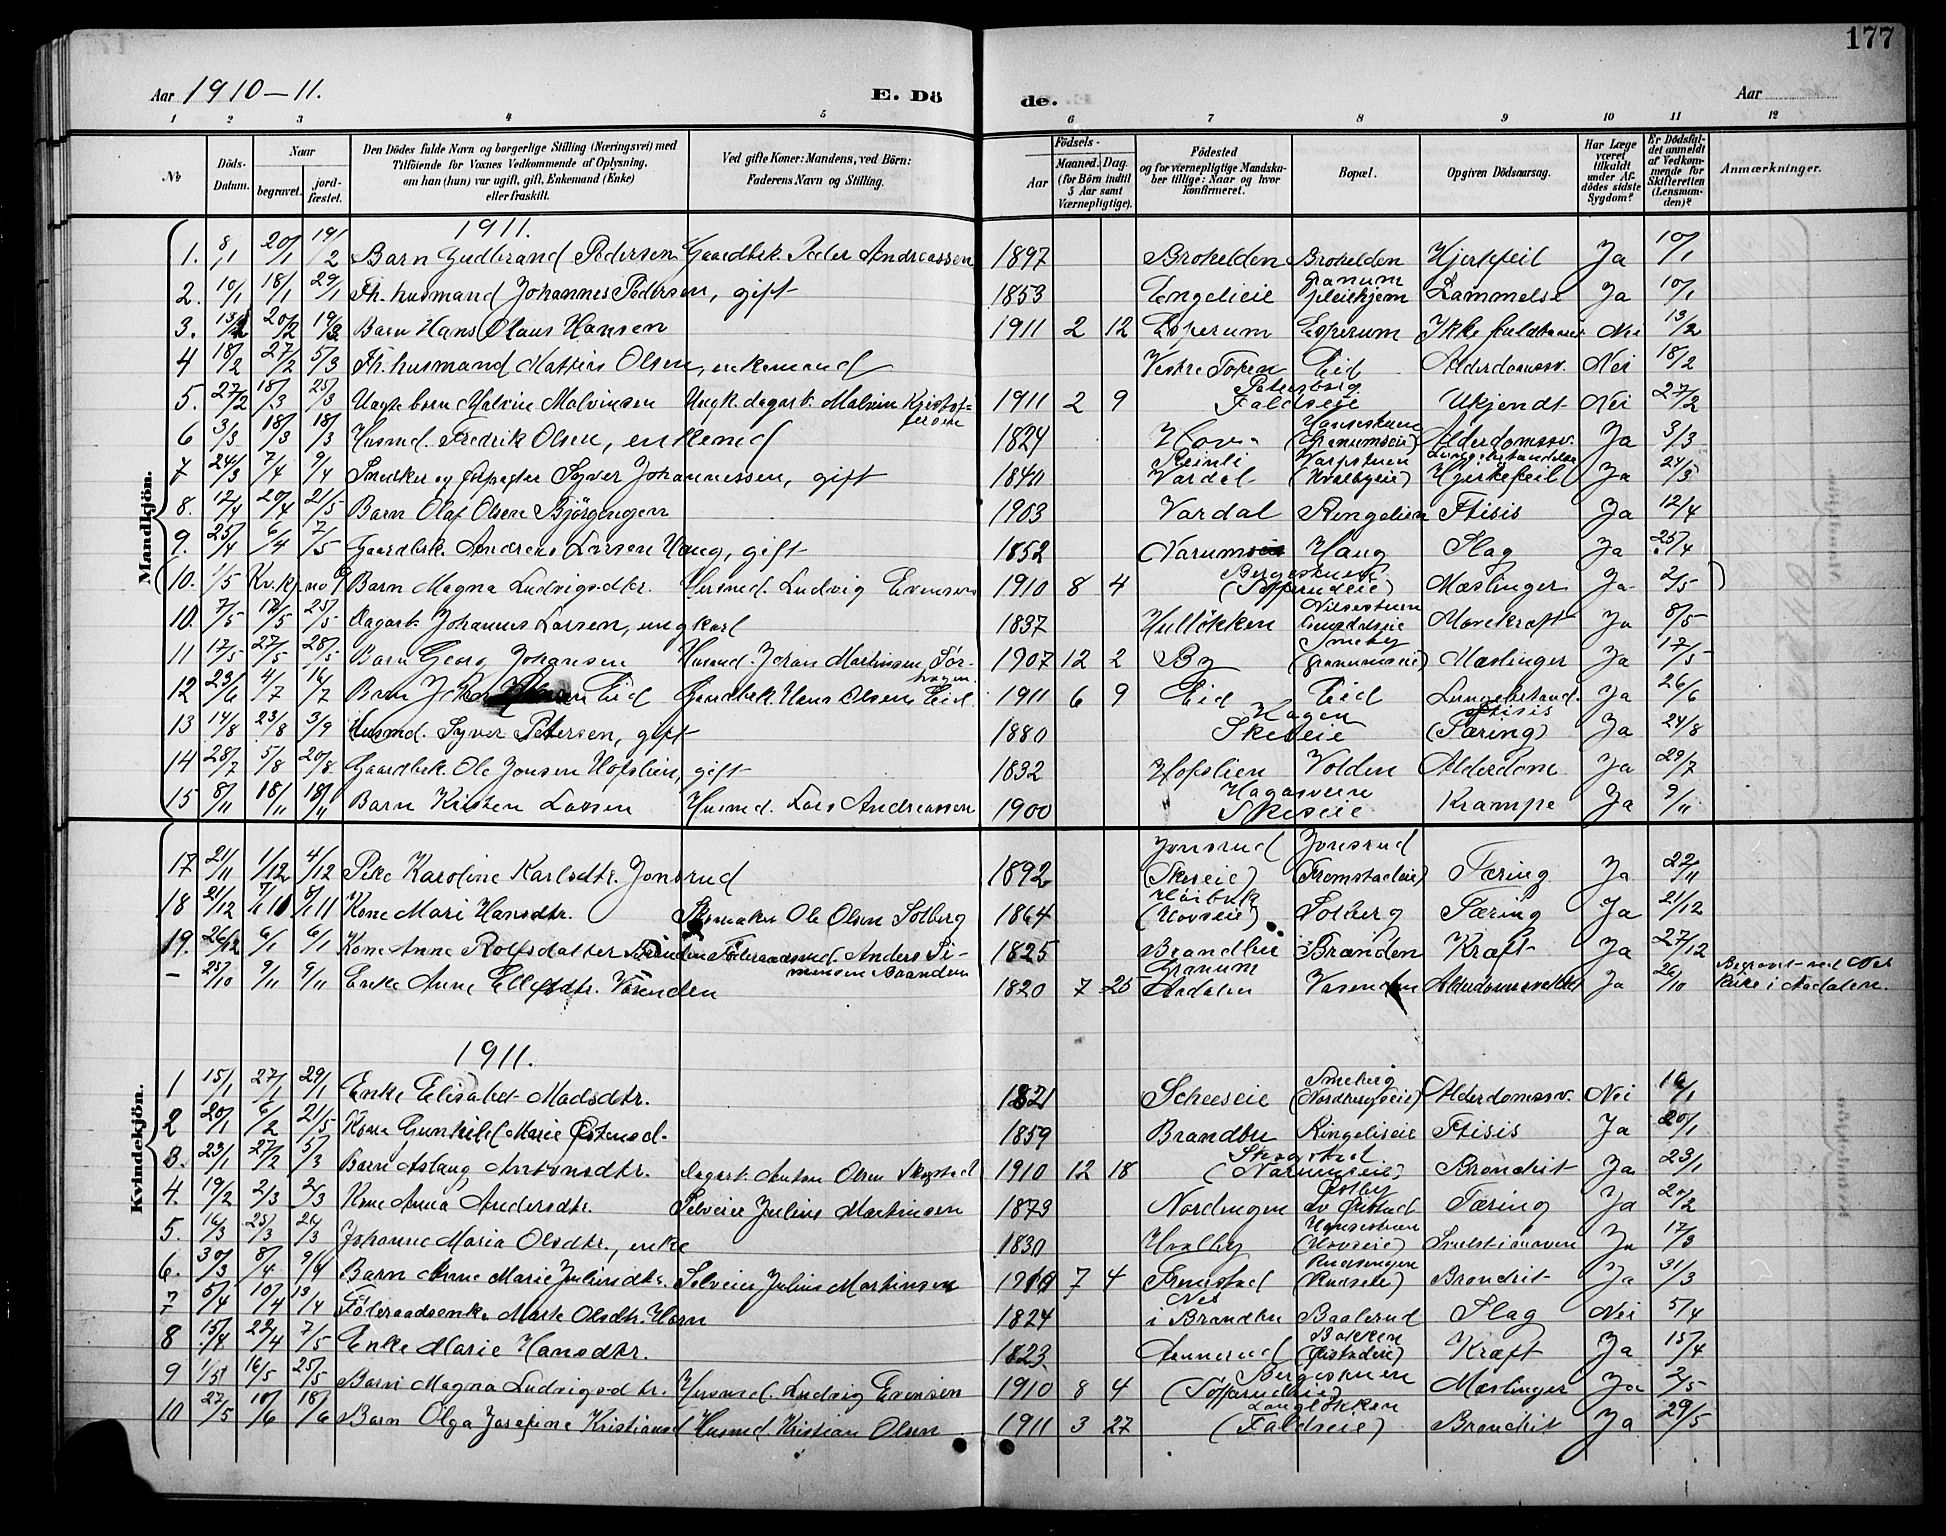 177
Aar 1910-11. E. Dö de. Aar
1 2 3 4 5 6 7 8 9 10 11 12
No Döds-Datum. Naar begravet. jord-fæstet. Den Dödes fulde Navn og borgerlige Stilling (Næringsvei) med Tilföiende for Voxnes Vedkommende af Oplysning, om han (hun) var ugift, gift, Enkemand (Enke) eller fraskilt. Ved gifte Koner: Mandens, ved Börn: Faderens Navn og Stilling. Födsels- Aar Maaned. Dag. (for Börn indtil 5 Aar samt Værnepligtige). Födested og for værnepligtige Mandskaber tillige: Naar og hvor konfirmeret. Bopæl. Opgiven Dödsaarsag. Har Læge været tilkaldt under Afdödes sidste Sygdom? Er Dödsfaldet anmeldt af Vedkommende for Skifteretten (Lensmanden)? Anmærkninger.
Mandkjön.
1911.
1. 8/1 20/1 19/2 Barn Gudbrand Pedersen Gaardbrk. Peder Andreassen 1897 Brokelden Brokelden Hjertefeil Ja 10/1
2. 10/1 18/1 29/1 Fh. husmand Johannes Pedersen, gift 1853 Engelieie Granum pleiehjem Lammelse Ja 10/1
3. 13/2 20/2 19/3 Barn Hans Olaus Hansen 1911 2 12 Esperum Esperum Ikke fuldbaaret Nei 13/2
4 18/2 27/2 5/3 Fh. husmand Mathias Olsen, enkemand Vestre Toten Eid Alderdomssv. Nei 18/2
5. 27/2 18/3 25/3 Uegte barn Malvin Malvinsen Ungk. dagarb. Malvin Kristoffersen 1911 2 9 Petersborg Faldseie Ukjendt Nei 27/2
6 3/3 18/3 18/3 Husmd. Fredrik Olsen, enkemd 1824 Hov Hansestuen (Granumseie) Alderdomssv. Ja 3/3
7 24/3 7/4 9/4 Snedker og forpagter Syver Johannessen, gift 1840 Reinli Vardal (Hvalbyeie) Hjertefeil Ja 24/3
8. 12/4 20/4 21/5 Barn Olaf Olsen Bjørgengen 1903 Vardal Ringelien Ftisis Ja 12/4
9. 25/4 6/4 7/5 Gaardbrk. Andreas Larsen Haug, gift 1852 Narum Haug Slag Ja 25/4
(10. 1/5 Kv.kj. no 9 Barn Magna Ludvigsdtr. Husmd. Ludvig Evensen 1910 8 4 Bergestuen (Topprudeie) Mæslinger Ja 2/5)
10. 7/5 17/5 25/5 Dagarb. Johannes Larsen, ungkarl 1837 Hulløkken Nilsestuen Mavekræft Ja 8/5
11 17/5 27/5 28/5 Barn Georg Johansen Husmd. Johan Martinsen 1907 12 2 By Smeby (Granumseie) Mæslinger Ja 17/5
12 23/6 4/7 16/7 Barn Johan Eid Gaardbrk. Hans Olsen Eid 1911 6 9 Eid Eid Lungebetænd. Ja 26/6
13 14/8 23/8 3/9 Husmd. Syver Petersen, gift 1880 Hagen Skeseie ftisis (Tæring) Ja 24/8
14 28/7 5/8 20/8 Gaardbrk. Ole Jonsen Hofslien, gift 1832 Hofslien Volden Alderdom Ja 29/7
15 8/11 18/11 18/11 Barn Kristen Larsen Husmd. Lars Andreassen 1900 Hagasveen Skeseie Krampe Ja 9/11
17 21/11 1/12 4/12 Pike Karoline Karlsdtr. Jonsrud 1892 Jonsrud (Skeseie) Jonsrud (Fremstadeie) Tæring Ja 22/11
18 21/12 7/1 11 8/1 11 Kone Mari Hansdtr. Skomaker Ole Olsen Solberg 1864 (Hovseie) Solberg Tæring Ja 21/12
19. 26/12 6/1 6/1 Kone Anne Rolfsdatter Brænden Føderaadsmd. Anders Simensen Brænden 1825 Brandbu Brænden Kræft Ja 27/12
- 25/10 9/11 9/11 Enke Anne Ellefsdtr. Vasenden 1820 7 25 Granum Aadalen Vasenden Alderdomssvakhet Ja 26/10 Begravet ved Nes kirke i Aadalen.
Kvindekjön.
1911.
1 15/1 27/1 29/1 Enke Elisabet Madsdtr. 1821 Scheeseie Smeberg (Nordbergseie) Alderdomssv. Nei 16/1
2 20/1 6/2 21/5 Kone Gunhild Marie Østensd. 1859 Brandbu Ringelieeie Ftisis Ja 20/1
3. 23/1 27/2 5/3 Barn Aslaug Antonsdtr. Dagarb. Anton Olsen Skogstad 1910 12 18 Skogstad (Narumseie) Bronchit Ja 23/1
4. 19/2 2/3 2/3 Kone Anna Andersdtr. Selveier Julius Martinsen 1873 Nordengen Østby av Fristad Tæring Ja 20/2
5. 16/3 25/3 26/3 Johanne Maria Olsdtr., enke 1830 Hvalby Hansestuen (Hovseie) Ja 17/3
6. 30/3 8/4 9/4 Barn Anne Marie Juliusdtr. Selveier Julius Martinsen 1910 7 4 Fremstad Bronchit Ja 31/3
7 5/4 10/4 13/4 Føderaadsenke Marte Olsdtr. Horn 1824 Nes i Brandbu Baalerud Slag Nei 5/4
8 15/4 22/4 7/5 Enke Marie Hansdtr. 1823 Annerud Bakken Kræft Ja 15/4
9 1/5 16/5 25/5 Barn Magna Ludvigsdtr. Husmd. Ludvig Evensen 1910 8 4 Bergestuen (Topprudeie) Mæslinger Ja 2/5
10 27/5 10/6 18/6 Barn Olga Josefine Kristiansd Husmd. Kristian Olsen 1911 3 27 Langløkken (Faldseie) Bronchit Ja 29/5